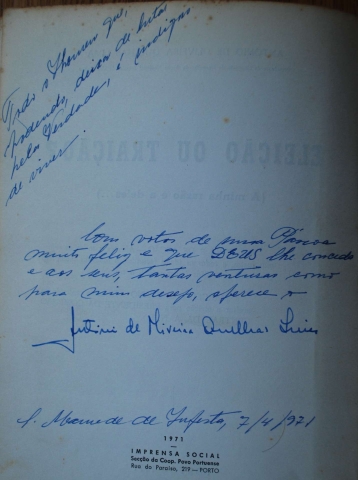 Todo o Homem que,
podendo, deixa de lutar
pela Verdade, é indigno
de viver!
ELEIÇÃO OU TRAIÇÃO?
Com votos de uma Páscoa
muito feliz e que DEUS lhe conceda
e aos seus, tantas venturas como
para mim desejo, oferece o
António de Oliveira Quelhas Lima
S. Mamede de Infesta, 7/4/971
1971
IMPRENSA SOCIAL
Secção da Coop. Povo Portuense
Rua do Paraíso, 219 — PORTO